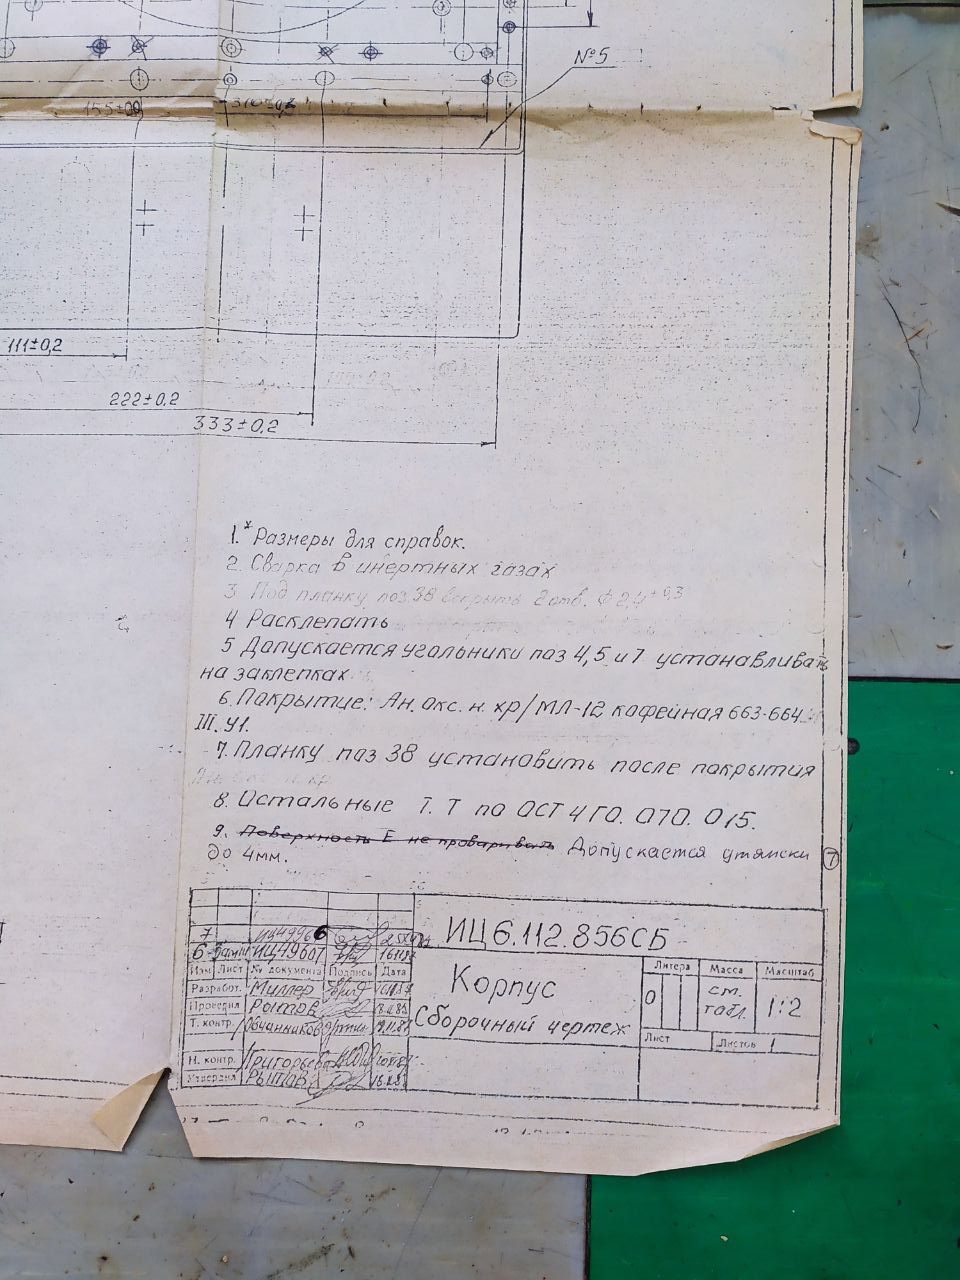 №5
155±0,2
310±0,2
111±0,2
222±0,2
333±0,2
1.* Размеры для справок.
2. Сварка в инертных газах
3 Под планку поз 38 2 отв. ф 2,4±0,3
4 Расклепать
5 Допускается угольники поз 4,5 и 7 устанавливать
на заклепках
6. Покрытие: Ан. окс. н. хр/МЛ-12 кофейная 663-664.
III. У1.
7. Планку поз 38 установить после покрытия
8. Остальные Т. Т по ОСТ 4 ГО. 070. 015.
9. Поверхность Е не проваривать Допускается утяжски 7
до 4мм.
7 ИЦ49966
6 ИЦ49607
Изм Лист № документа Подпись Дата
Разработ. Миллер
Проверил Рытов
Т. контр. Овчинников
Н. контр. Григорьева
Утвердил Рытов
ИЦ6.112.856СБ
Корпус
Сборочный чертеж
Литера Масса Масштаб
О см. табл. 1:2
Лист Листов 1